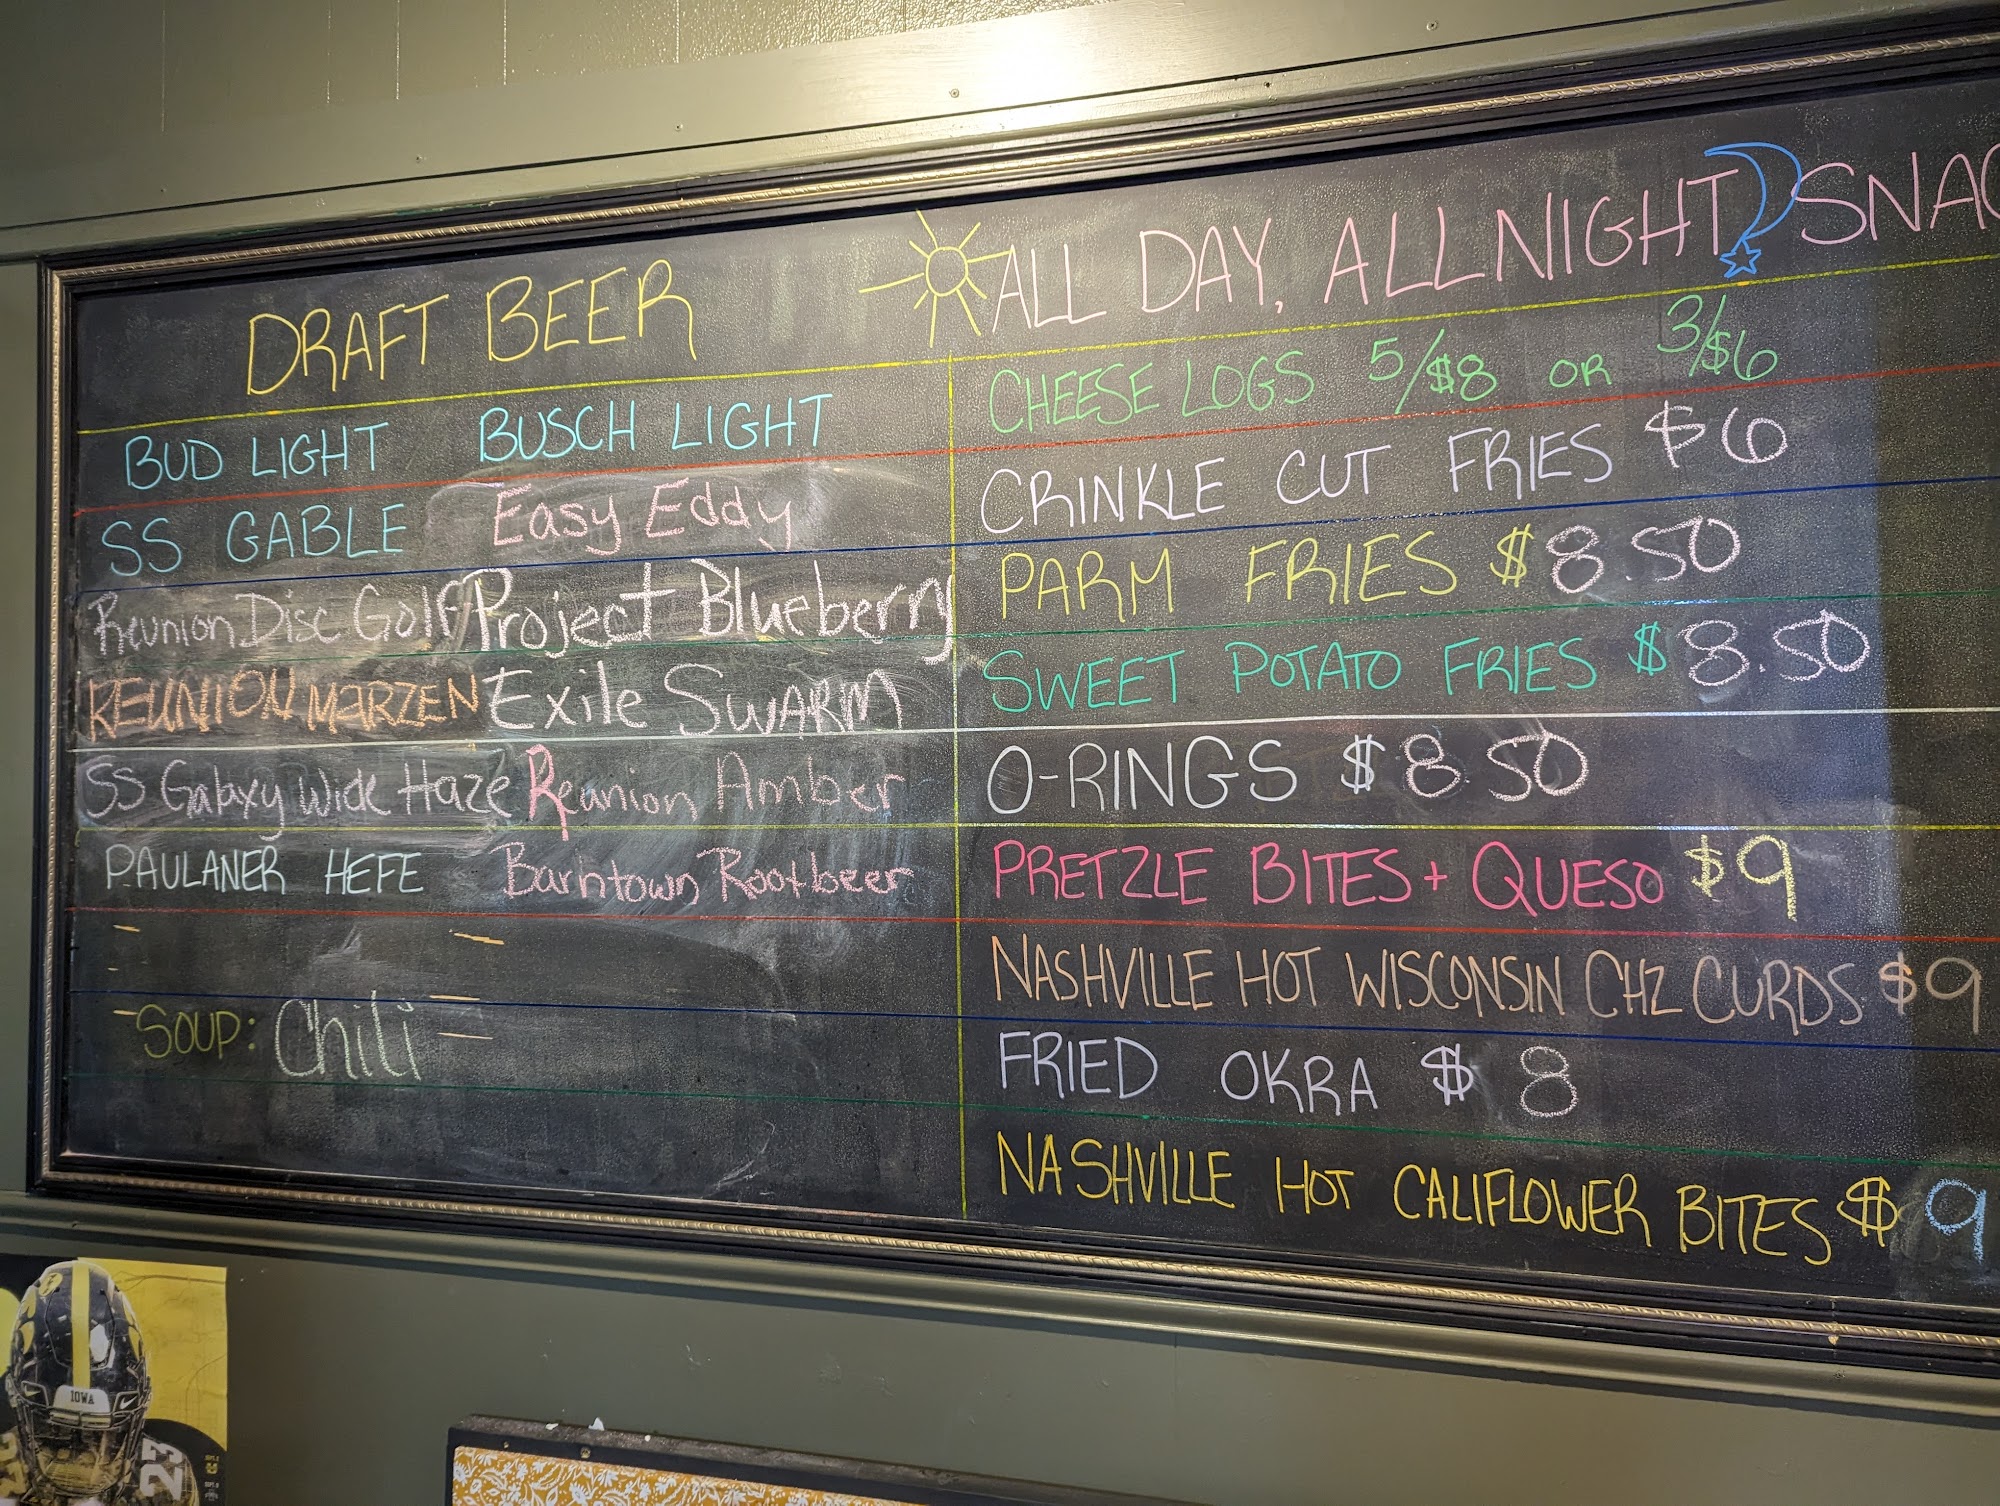 DRAFT BEER
BUD LIGHT BUSCH LIGHT
SS GABLE Easy Eddy
Reunion Disc Golf Project Blueberry
REUNION MERZEN Exile SWARM
SS Galaxy Wide Haze Reunion Amber
PAULANER HEFE Barhtown Rootbeer
SOUP: Chili
ALL DAY, ALL NIGHT SNAC
CHEESE LOGS 5/$8 OR 3/$6
CRINKLE CUT FRIES $6
PARM FRIES $8.50
SWEET POTATO FRIES $8.50
O-RINGS $8.50
PRETZLE BITES + QUESO $9
NASHVILLE HOT WISCONSIN CHZ CURDS $9
FRIED OKRA $8
NASHVILLE HOT CALIFLOWER BITES $9
IOWA
23